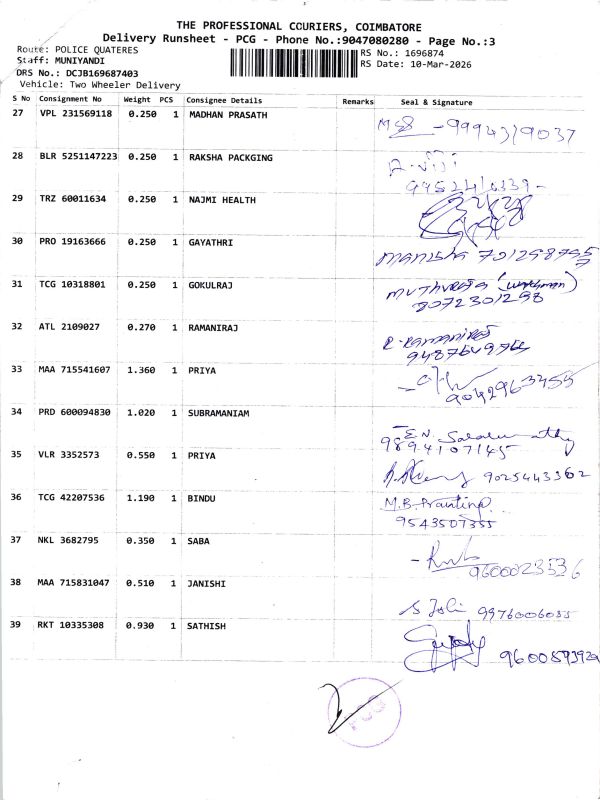 THE PROFESSIONAL COURIERS, COIMBATORE
Delivery Runsheet - PCG - Phone No.:9047080280 - Page No.:3
Route: POLICE QUATERES
RS No.: 1696874
Staff: MUNIYANDI
RS Date: 10-Mar-2026
DRS No.: DCJB169687403
Vehicle: Two Wheeler Delivery
S No Consignment No Weight PCS Consignee Details Remarks Seal & Signature
27 VPL 231569118 0.250 1 MADHAN PRASATH
28 BLR 5251147223 0.250 1 RAKSHA PACKGING
29 TRZ 60011634 0.250 1 NAJMI HEALTH
30 PRO 19163666 0.250 1 GAYATHRI
MANISHA
31 TCG 10318801 0.250 1 GOKULRAJ
MUTHURAJA (watchman)
8072301298
32 ATL 2109027 0.270 1 RAMANIRAJ
R. Ramaniraj
33 MAA 715541607 1.360 1 PRIYA
9042963455
34 PRD 600094830 1.020 1 SUBRAMANIAM
E.N.
9894107145
35 VLR 3352573 0.550 1 PRIYA
9025443362
36 TCG 42207536 1.190 1 BINDU
M.B. Printing
9543507355
37 NKL 3682795 0.350 1 SABA
9600023536
38 MAA 715831047 0.510 1 JANISHI
9976006055
39 RKT 10335308 0.930 1 SATHISH